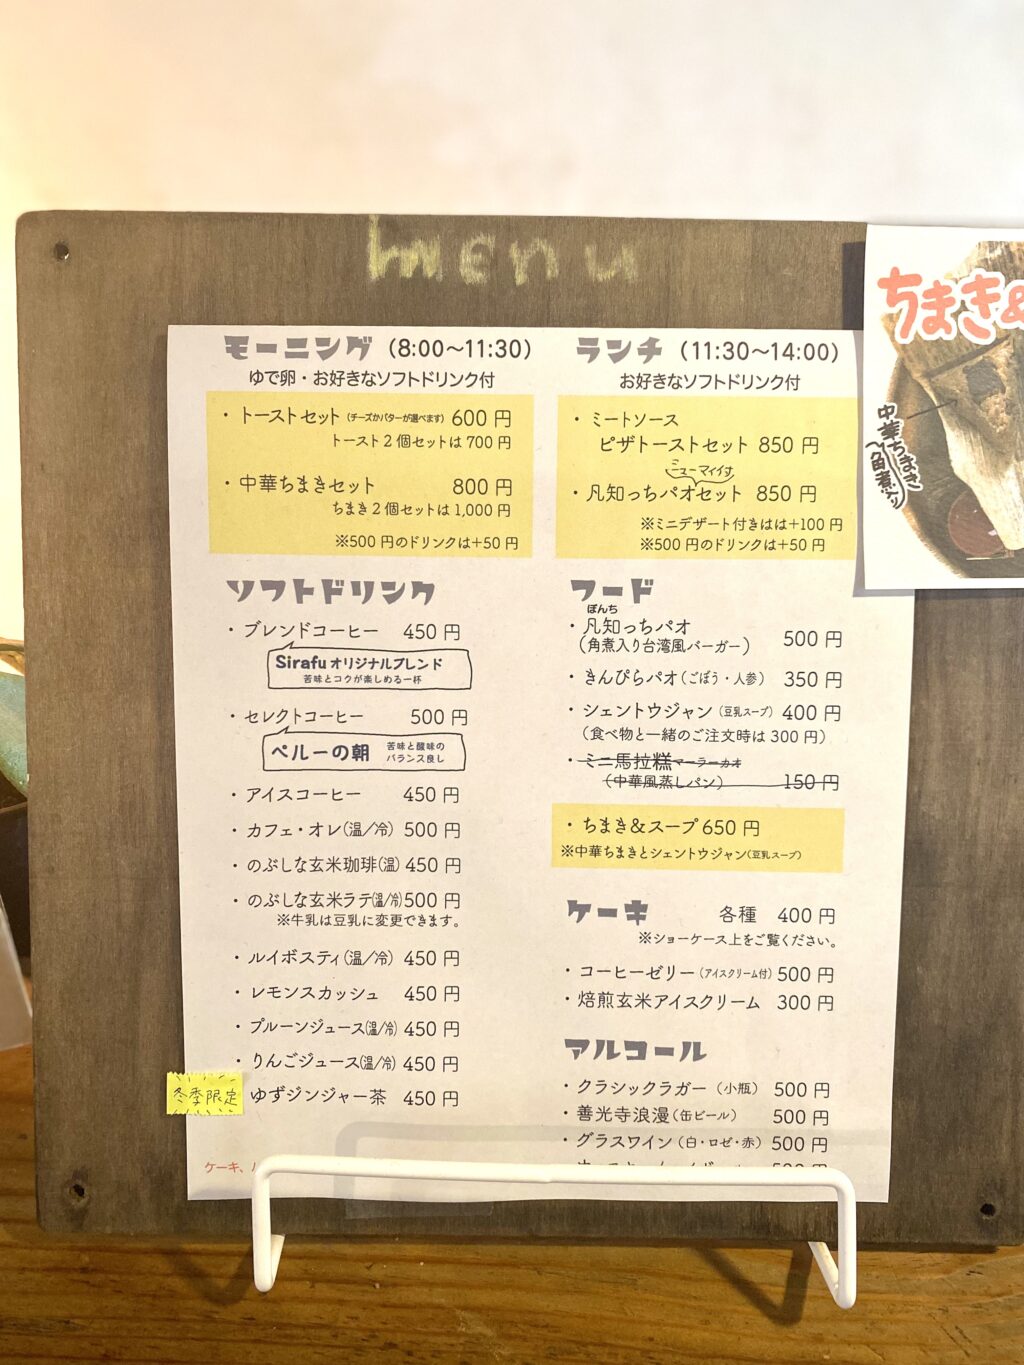 menu
モーニング (8:00〜11:30)
ゆで卵・お好きなソフトドリンク付
・トーストセット（チーズかバターが選べます）600円
トースト2個セットは700円
・中華ちまきセット 800円
ちまき2個セットは1,000円
※500円のドリンクは+50円
ソフトドリンク
・ブレンドコーヒー 450円
Sirafuオリジナルブレンド
苦味とコクが楽しめる一杯
・セレクトコーヒー 500円
ペルーの朝 苦味と酸味の
バランス良し
・アイスコーヒー 450円
・カフェ・オレ（温／冷）500円
・のぶしな玄米珈琲（温）450円
・のぶしな玄米ラテ（温/冷）500円
※牛乳は豆乳に変更できます。
・ルイボスティ（温／冷）450円
・レモンスカッシュ 450円
・プルーンジュース（温/冷）450円
・りんごジュース（温/冷）450円
冬季限定 ゆずジンジャー茶 450円
ケーキ、
ランチ (11:30〜14:00)
お好きなソフトドリンク付
・ミートソース
ピザトーストセット 850円
・凡知っちパオセット 850円
※ミニデザート付きはは+100円
※500円のドリンクは+50円
フード
ぼんち
・凡知っちパオ 500円
（角煮入り台湾風バーガー）
・きんぴらパオ（ごぼう・人参）350円
・シェントウジャン（豆乳スープ）400円
（食べ物と一緒のご注文時は300円）
・ミニ馬拉糕マーラーカオ
（中華風蒸しパン） 150円
・ちまき&スープ 650円
※中華ちまきとシェントウジャン（豆乳スープ）
ケーキ 各種 400円
※ショーケース上をご覧ください。
・コーヒーゼリー（アイスクリーム付）500円
・焙煎玄米アイスクリーム 300円
アルコール
・クラシックラガー（小瓶） 500円
・善光寺浪漫（缶ビール） 500円
・グラスワイン（白・ロゼ・赤）500円
ちまき&
中華ちまき